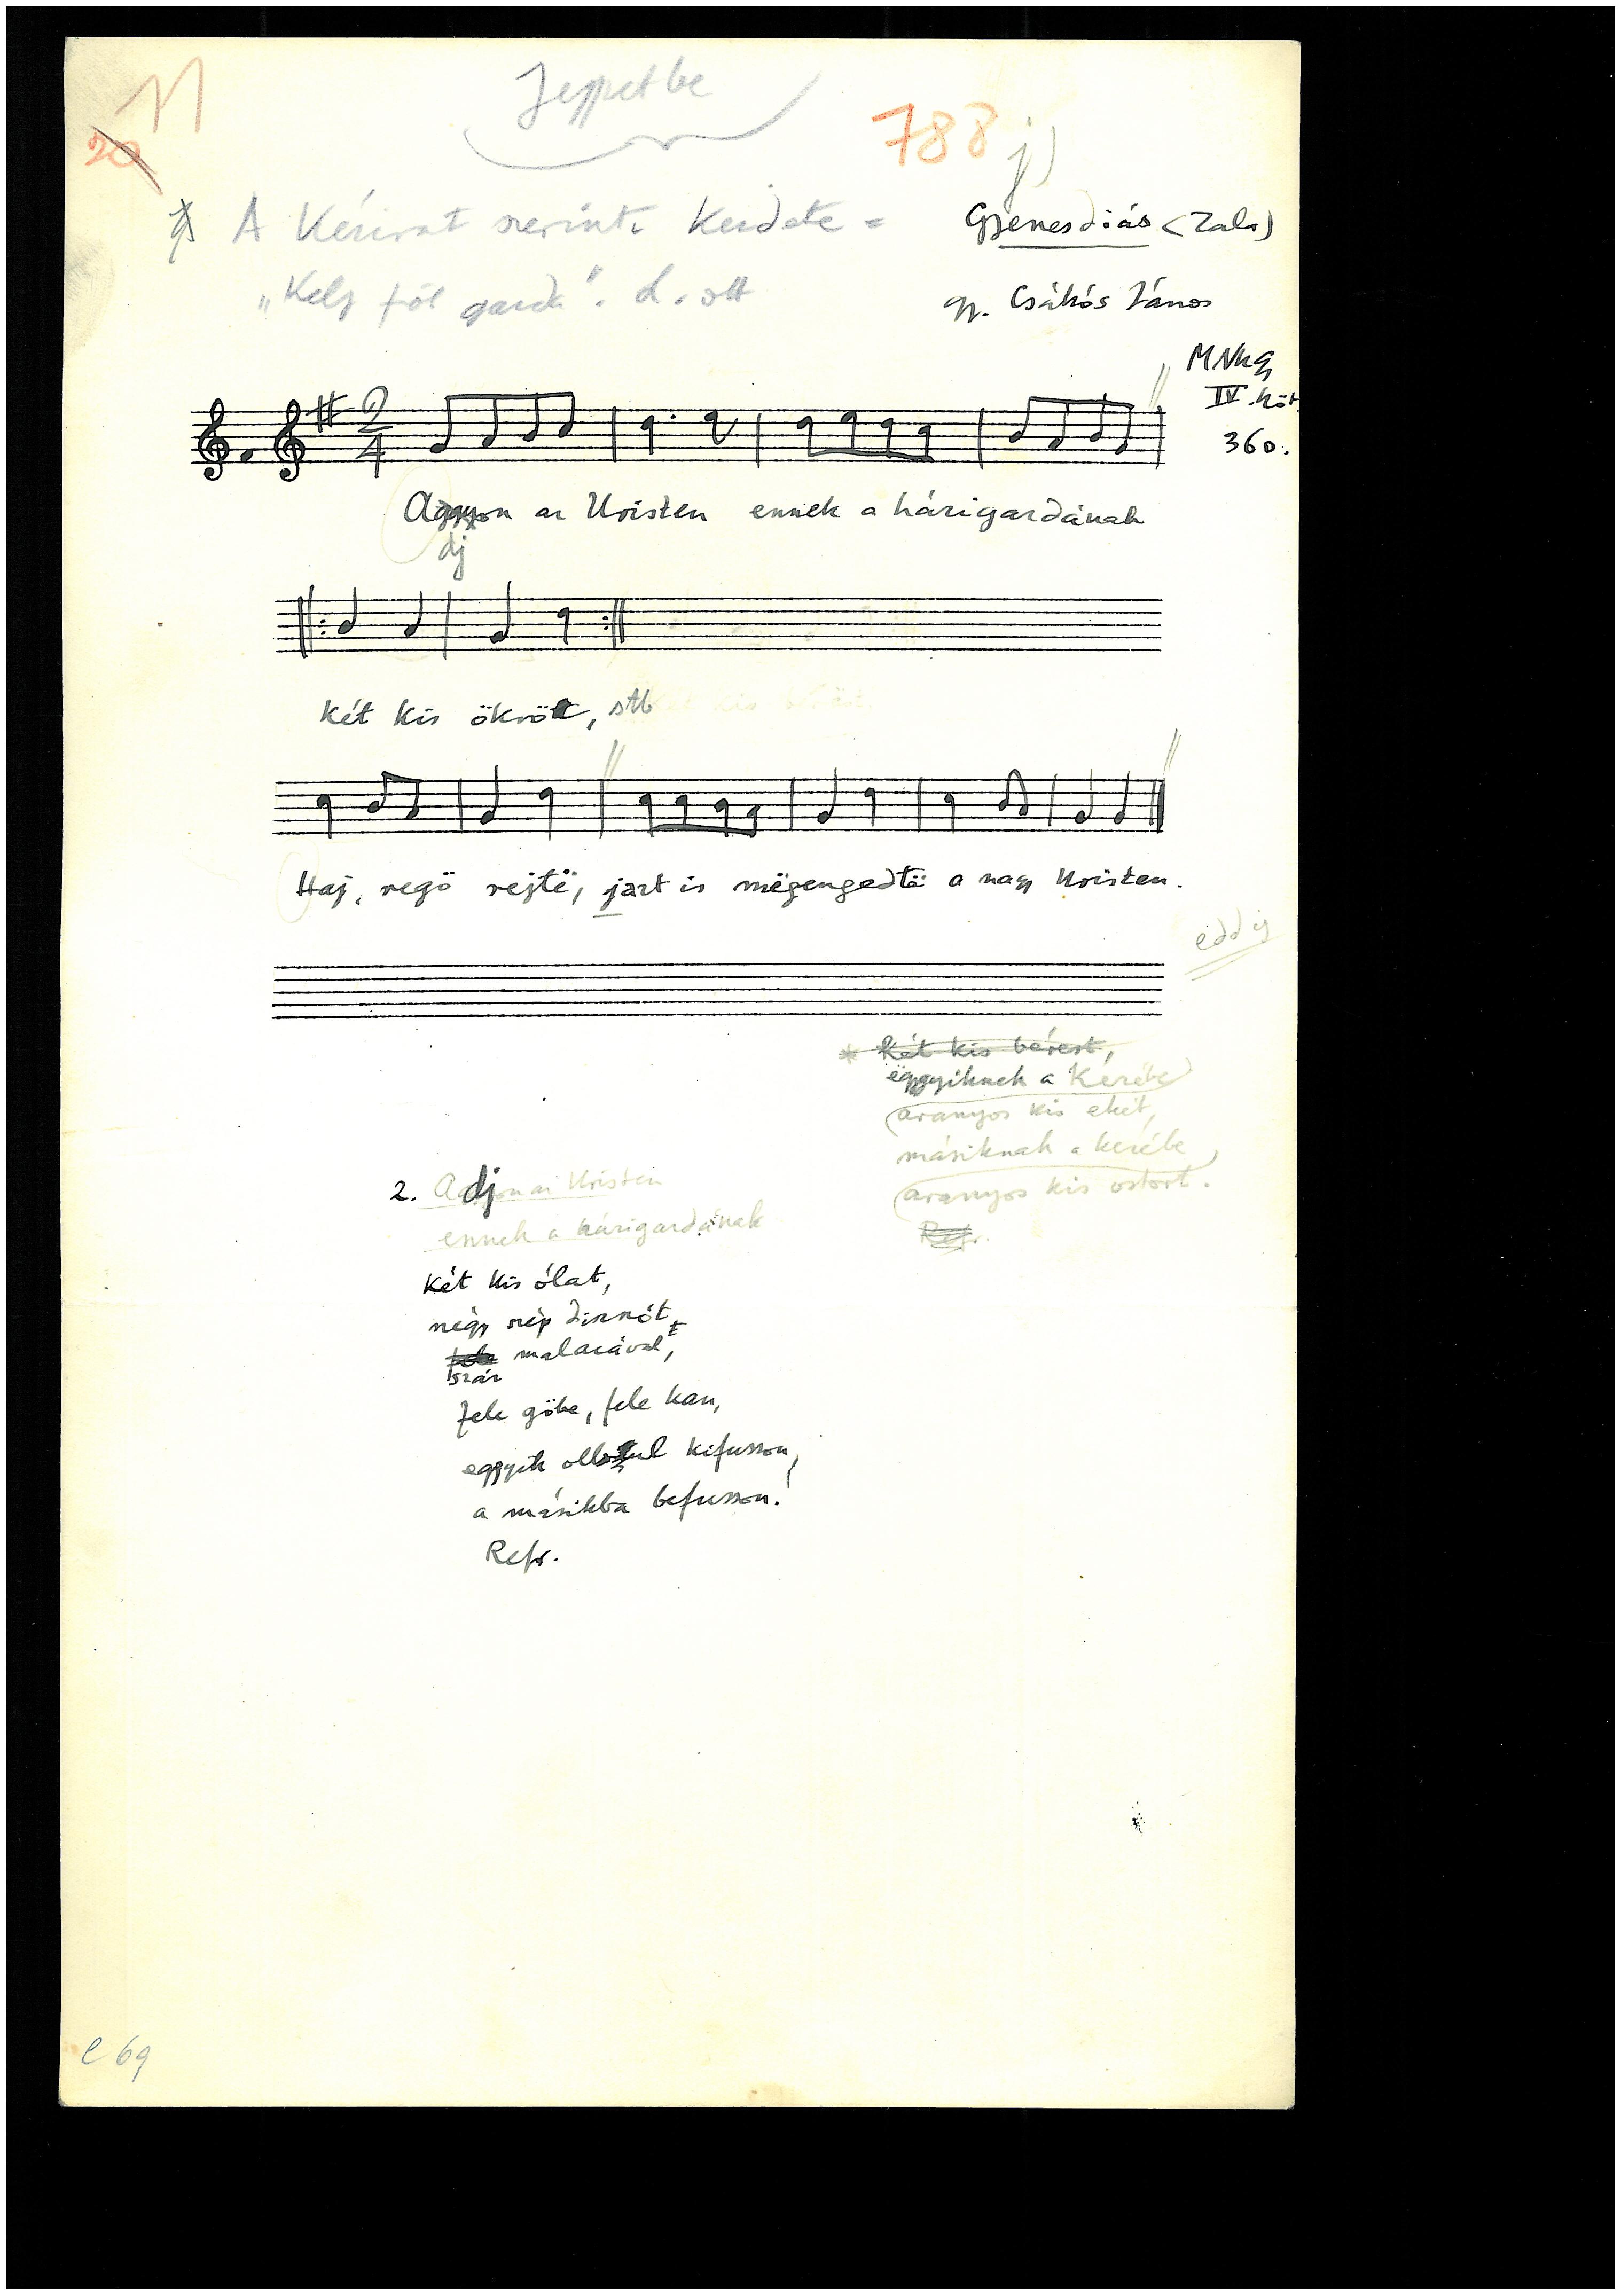 11
20
Jegyzetbe
788 j)
A Kézirat szerint Kezdete =
Gyenesdiás (Zala)
"Kelj föl garda". L. ott
gy. Csákós János
MNGy
IV. köt.
360.
2/4
Aggyon az Uristen ennek a hárigardának
dj
Két kis ökröt, stb
Haj, regö rejtë, jazt is mëgengedtë a nagy Uristen.
eddig
* Két kis bérest,
ëggyiknek a Kezébe
aranyos kis ekét,
másiknak a kezébe
aranyos kis ostort.
Refr.
2. Adjon az Uristen
ennek a hárigardának
Két kis ólat,
négy szép disznót
fele malacával,
száz
fele göbe, fele kan,
eggyik kifusson,
a másikba befusson!
Refr.
e 69